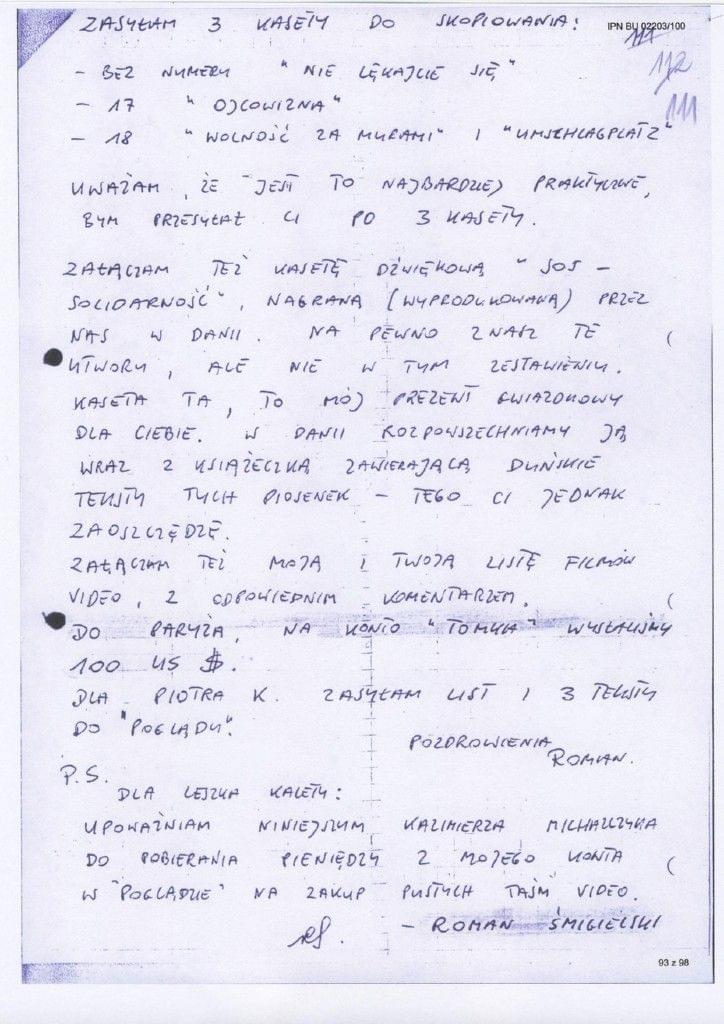 IPN BU 02203/100
ZASYŁAM 3 KASETY DO SKOPIOWANIA:
112
111
- BEZ NUMERU "NIE LĘKAJCIE SIĘ"
- 17 "OJCOWIZNA"
- 18 "WOLNOŚĆ ZA MURAMI" I "UMSCHLAGPLATZ"
UWAŻAM, ŻE JEST TO NAJBARDZIEJ PRAKTYCZNE,
BYM PRZESYŁAŁ CI PO 3 KASETY.
ZAŁĄCZAM TEŻ KASETĘ DŹWIĘKOWĄ "SOS -
SOLIDARNOŚĆ", NAGRANĄ (WYPRODUKOWANĄ) PRZEZ
NAS W DANII. NA PEWNO ZNASZ TE
UTWORY, ALE NIE W TYM ZESTAWIENIU.
KASETA TA, TO MÓJ PREZENT GWIAZDKOWY
DLA CIEBIE. W DANII ROZPOWSZECHNIAMY JĄ
WRAZ Z KSIĄŻECZKĄ ZAWIERAJĄCĄ DUŃSKIE
TEKSTY TYCH PIOSENEK - TEGO CI JEDNAK
ZAOSZCZĘDZĘ.
ZAŁĄCZAM TEŻ MOJĄ I TWOJĄ LISTĘ FILMÓW
VIDEO, Z ODPOWIEDNIM KOMENTARZEM.
DO PARYŻA, NA KONTO "TOMKA" WYSŁALIŚMY
100 US $.
DLA PIOTRA K. ZASYŁAM LIST I 3 TEKSTY
DO "POGLĄDU".
POZDROWIENIA
ROMAN.
P.S.
DLA LESZKA KALETY:
UPOWAŻNIAM NINIEJSZYM KAZIMIERZA MICHALCZYKA
DO POBIERANIA PIENIĘDZY Z MOJEGO KONTA
W "POGLĄDZIE" NA ZAKUP PUSTYCH TAŚM VIDEO.
RS. - ROMAN ŚMIGIELSKI
93 z 98